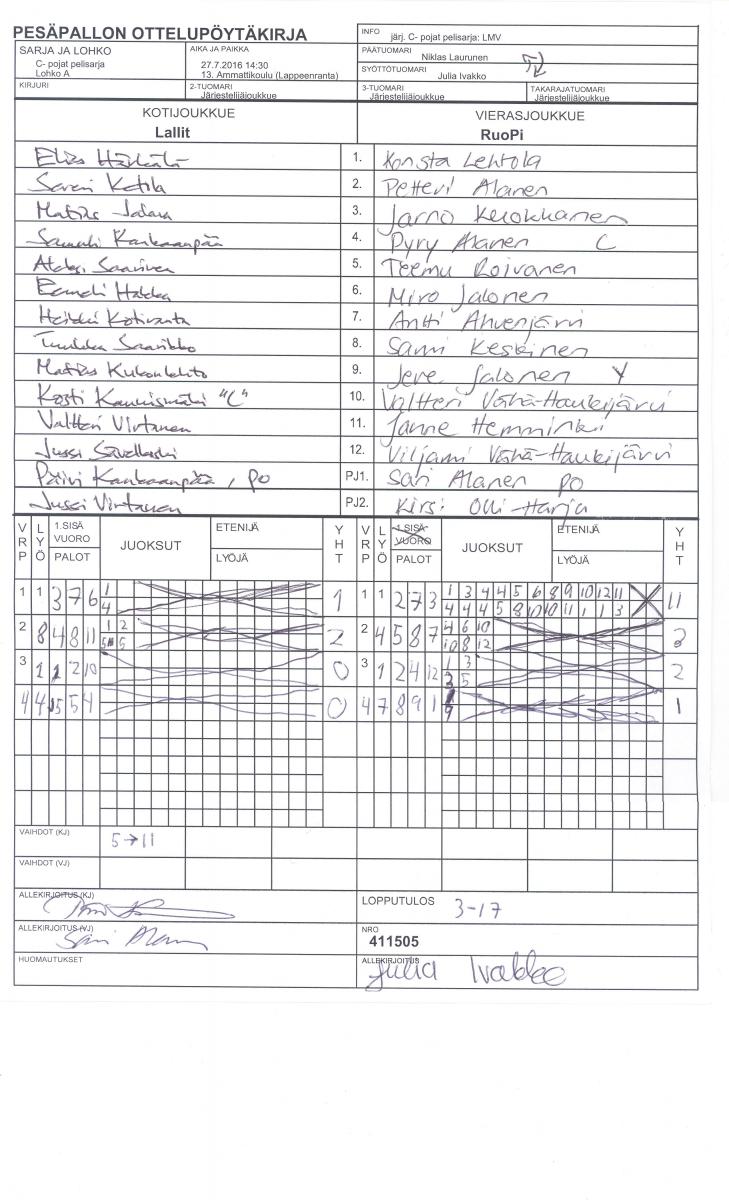 PESÄPALLON OTTELUPÖYTÄKIRJA
INFO järj. C- pojat pelisarja: LMV
SARJA JA LOHKO
C- pojat pelisarja
Lohko A
AIKA JA PAIKKA
27.7.2016 14:30
13. Ammattikoulu (Lappeenranta)
PÄÄTUOMARI Niklas Laurunen
SYÖTTÖTUOMARI Julia Ivakko
KIRJURI
2-TUOMARI
Järjestelijäjoukkue
3-TUOMARI
Järjestelijäjoukkue
TAKARAJATUOMARI
Järjestelijäjoukkue
KOTIJOUKKUE
Lallit
VIERASJOUKKUE
RuoPi
1. Konsta Lehtola
Ketola 2. Petteri Alanen
Matias 3. Jarno Kuokkanen
Samuli Kankaanpää 4. Pyry Alanen C
Saarinen 5. Teemu Roivanen
Eemeli Hakka 6. Miro Jalonen
Heikki Kotiranta 7. Antti Ahvenjärvi
Tuukka Saarikko 8. Sami Keskinen
Matias Kukonlehto 9. Jere Jalonen Y
Kosti Kaunismäki "C" 10. Valtteri Vähä-Haukijärvi
Valtteri Virtanen 11. Janne Hemminki
Jussi 12. Viljami Vähä-Haukijärvi
Päivi Kankaanpää, PO PJ1. Sari Alanen PO
Jussi Virtanen PJ2. Kirsi Olli-Harju
VRP LYÖ 1.SISÄ VUORO PALOT JUOKSUT ETENIJÄ LYÖJÄ YHT VRP LYÖ 1.SISÄ VUORO PALOT JUOKSUT ETENIJÄ LYÖJÄ YHT
1 1 3 7 6 1 1 1 1 2 7 3 1 3 4 4 5 6 8 9 10 12 11 11
4 4 4 4 5 8 10 10 11 1 1 3
2 8 4 8 11 1 2 2 2 4 5 8 7 4 6 10 3
5 10 8 12
3 1 1 2 10 0 3 1 2 4 12 1 3 2
5
4 4 5 5 4 0 4 7 8 9 1 1
9
VAIHDOT (KJ) 5→11
VAIHDOT (VJ)
ALLEKIRJOITUS (KJ)
LOPPUTULOS 3-17
ALLEKIRJOITUS (VJ) Sari
NRO
411505
HUOMAUTUKSET
ALLEKIRJOITUS Julia Ivakko